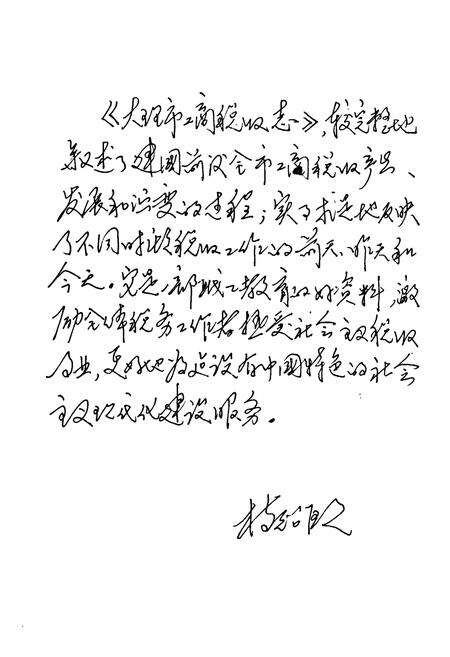 《大理市工商税收志》，较完整地
叙述了建国前后全市工商税收产生、
发展和演变的过程；实事求是地反映
了不同时期税收工作的前天、昨天和
今天。它是一部职工教育的好资料，激
励全体税务工作者热爱社会主义税收
事业，更好地为建设有中国特色的社会
主义现代化建设服务。